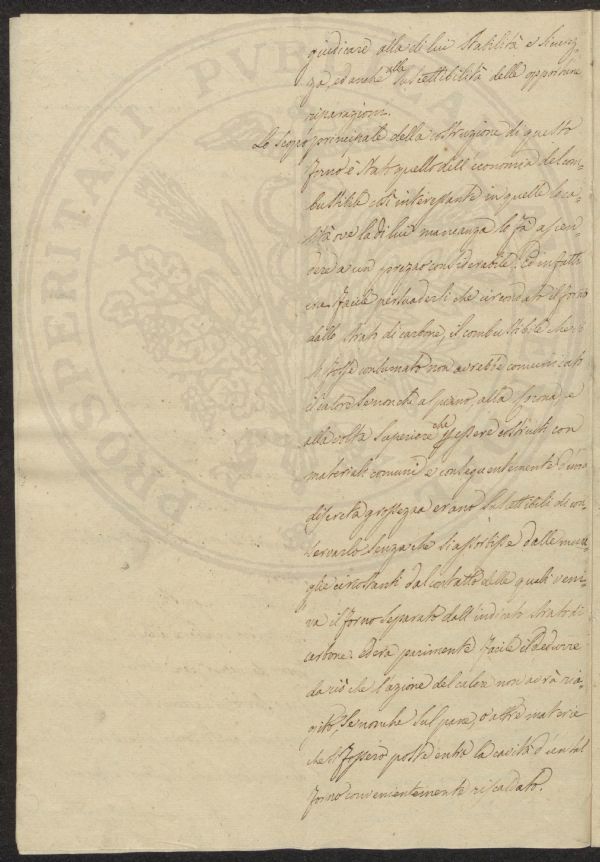 giudicare alla di lui stabilità e sicurez-
za, ed anche alla suscettibilità delle opportune
riparazioni.
Lo scopo principale della costruzione di questo
forno è stato quello dell'economia del com-
bustibile così interessante in quelle loca-
lità ove la di lui mancanza lo fà ascen-
dere a un prezzo considerabile. Ed infatti
era facile persuadersi che circondato il forno
dallo strato di carbone, il combustibile che vi
si fosse consumato non avrebbe comunicato
il calore senonchè al piano, alla forma, e
alla volta superiore che essere costruiti con
materiali comuni e conseguentemente d'una
discreta grossezza erano suscettibili di con-
servarlo senza che si assorbisse dalle mura-
glie circostanti dal contatto delle quali veni-
va il forno separato dall'indicato strato di
carbone. Ed era parimente facile il dedurre
da ciò che l'azione del calore non avrà ria-
gito, senonche sul pane, o altre materie
che si fossero poste entro la cavità d'un tal
forno convenientemente riscaldato.
PROSPERITATI PUBLICAE